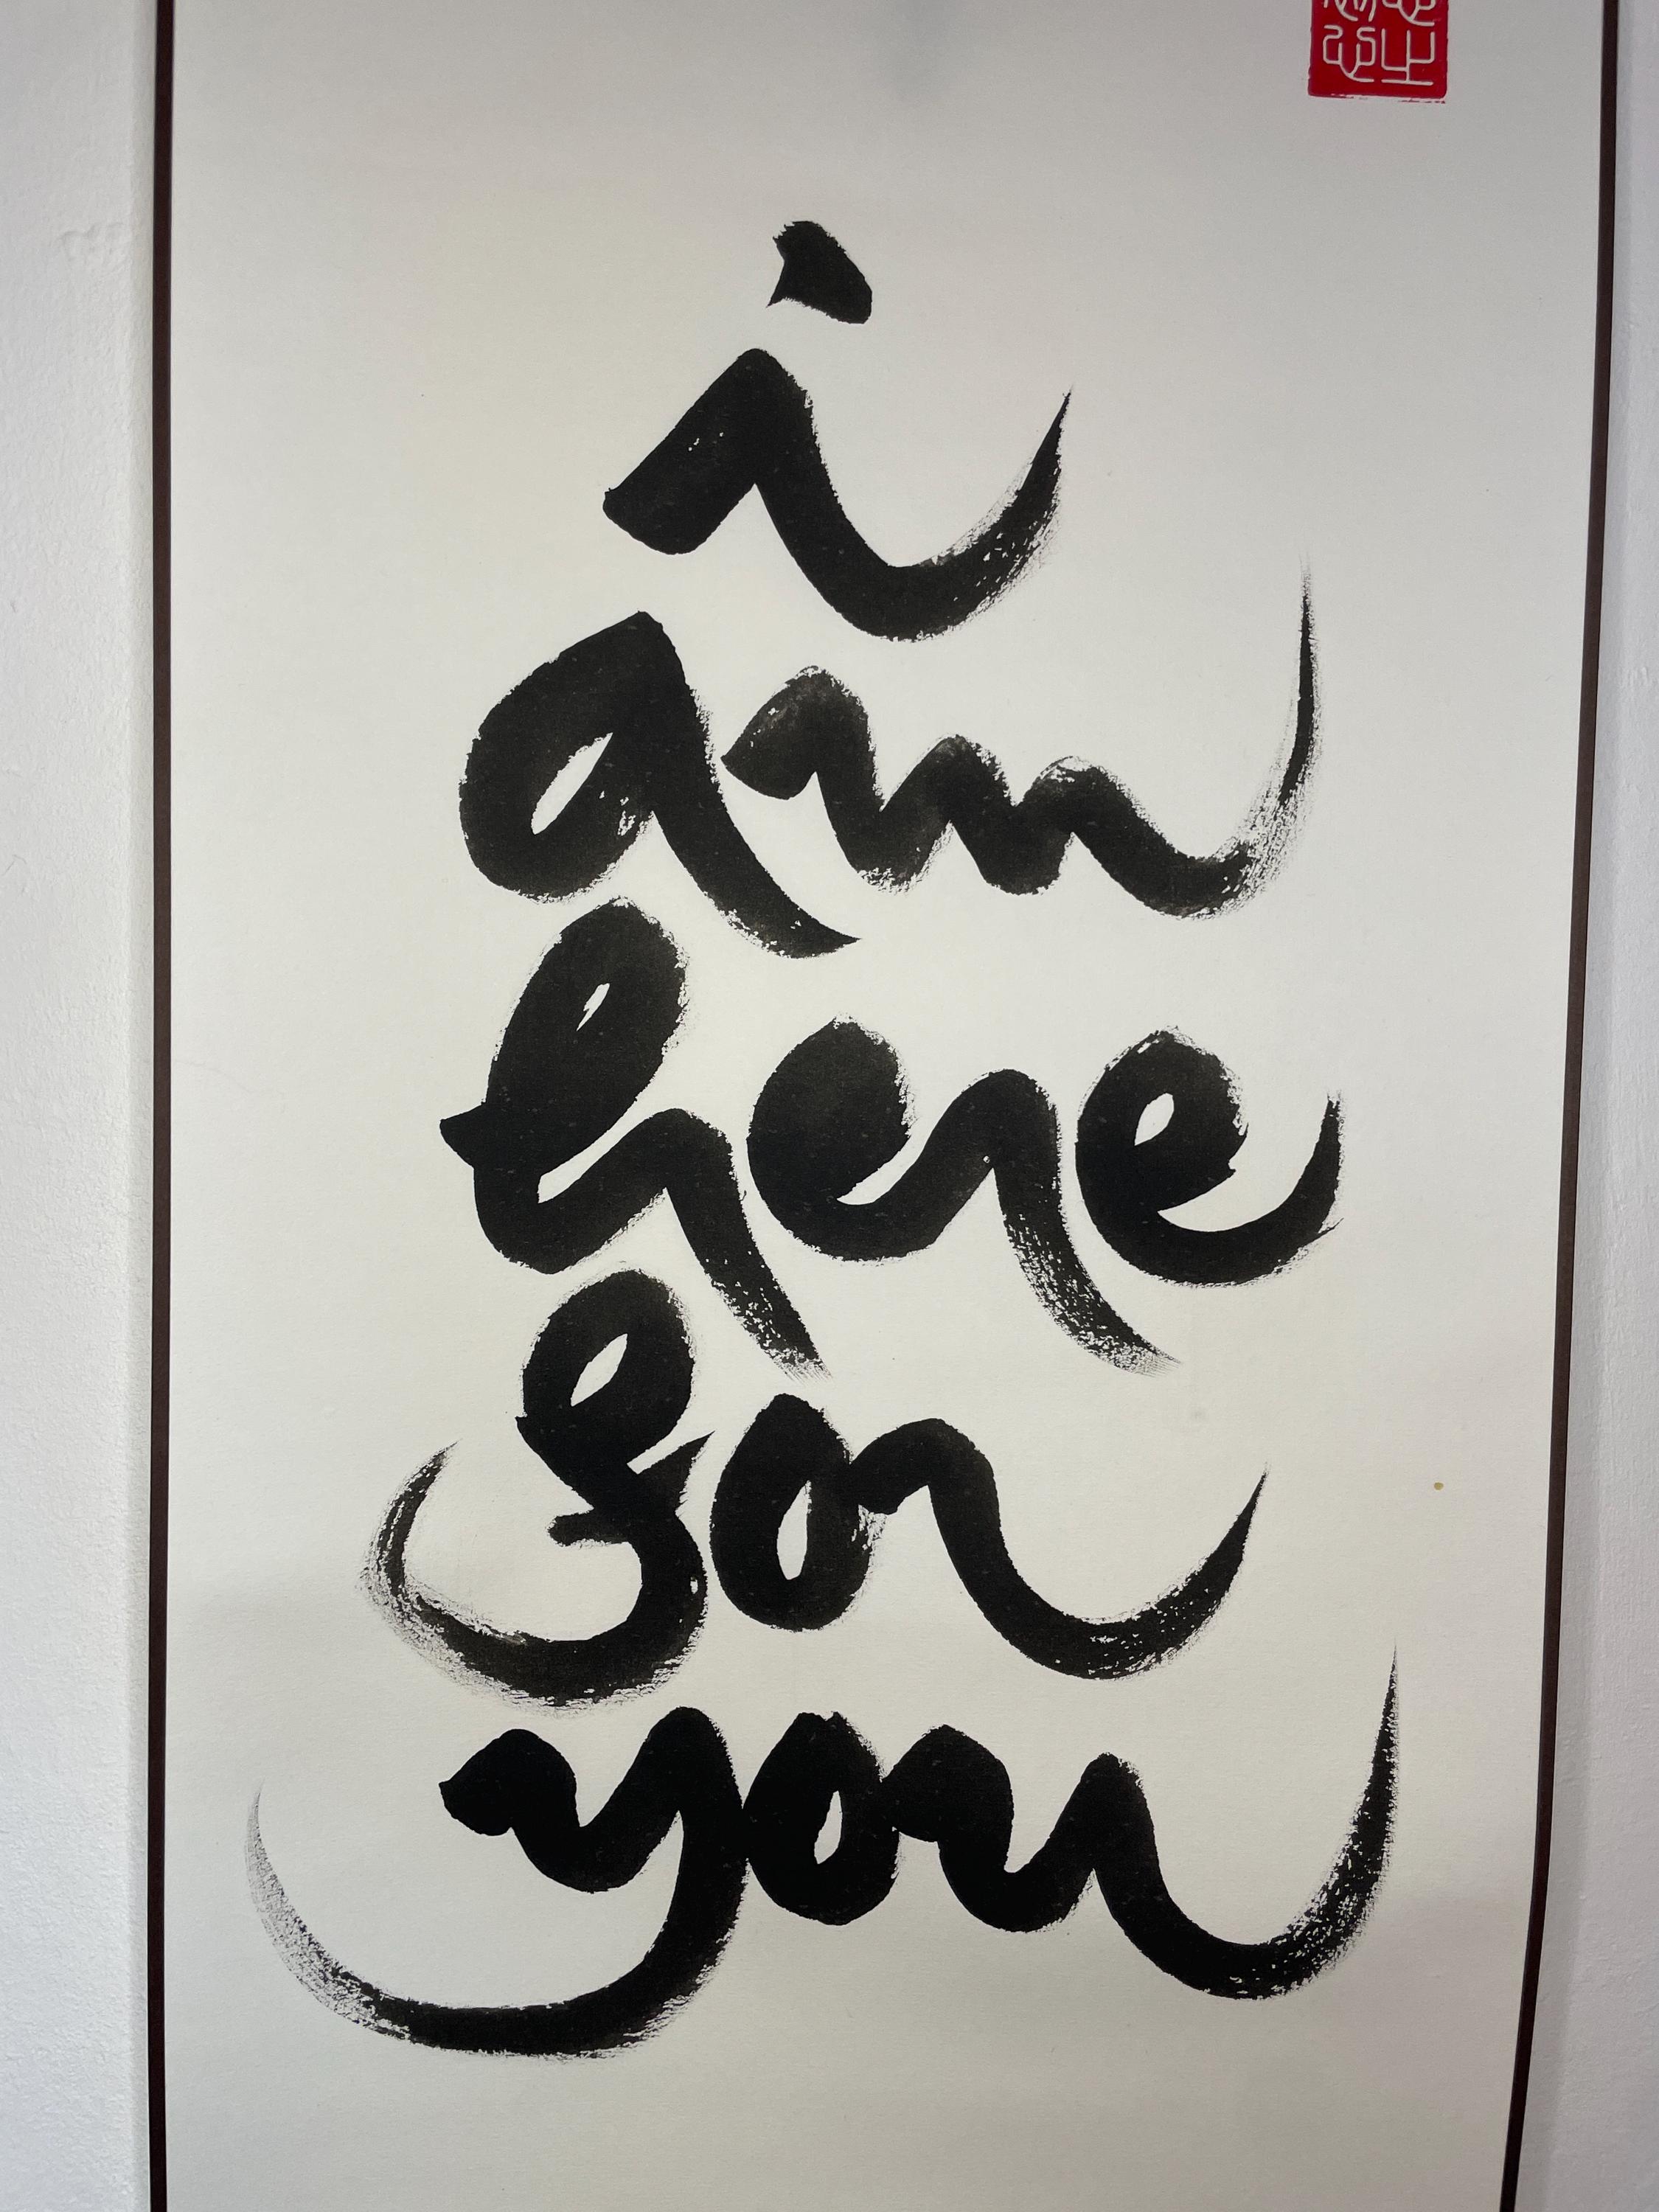 i
am
here
for
you